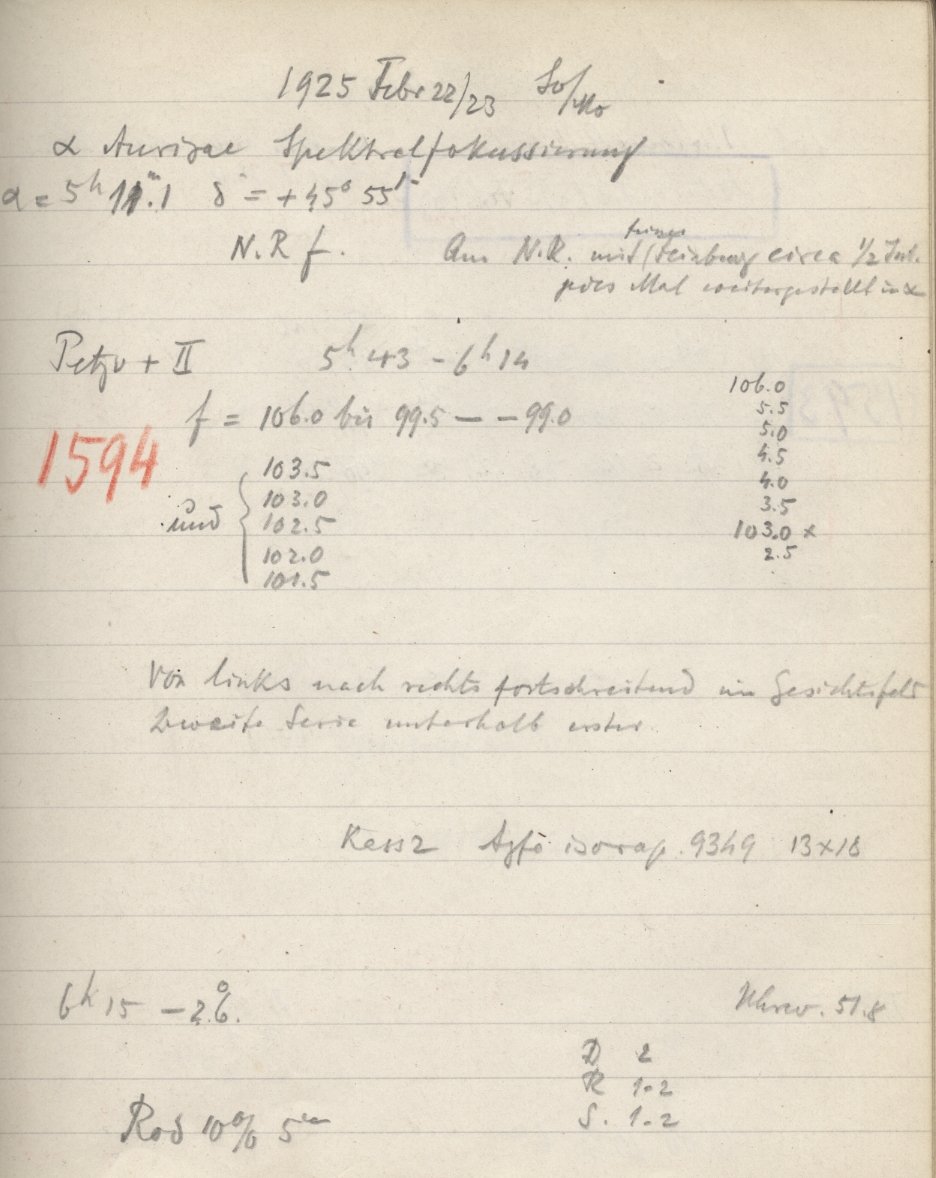 1925 Febr 22/23 So/Mo
α Aurigae Spektralfokussierung
α = 5h 11m.1 δ = +45° 55'
N.R f.
Am N.R. mit circa 1/2 Int.
jedes Mal weitergestellt in α
Petzv + II 5h 43 - 6h 14
f = 106.0 bis 99.5 — - 99.0
1594
und
103.5
103.0
102.5
102.0
101.5
106.0
5.5
5.0
4.5
4.0
3.5
103.0 x
2.5
Von links nach rechts fortschreitend im Gesichtsfeld
Zweite Serie unterhalb erster
Kass 2 Agfa isorap. 9349 13x18
6h 15 -2.°6.
Uhrw. 51.8
D 2
R 1-2
S. 1-2
Rod 10% 5m